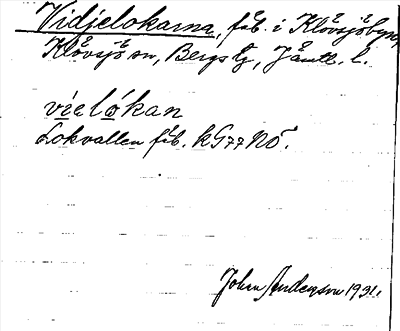 Vidjelokarna, fäb. i Klövsjöbyn,
Klövsjö sn, Bergs tg, Jämtl. l.
vielókan
Lokvallen fäb. kG77NÖ.
Johan Anderson 1931.